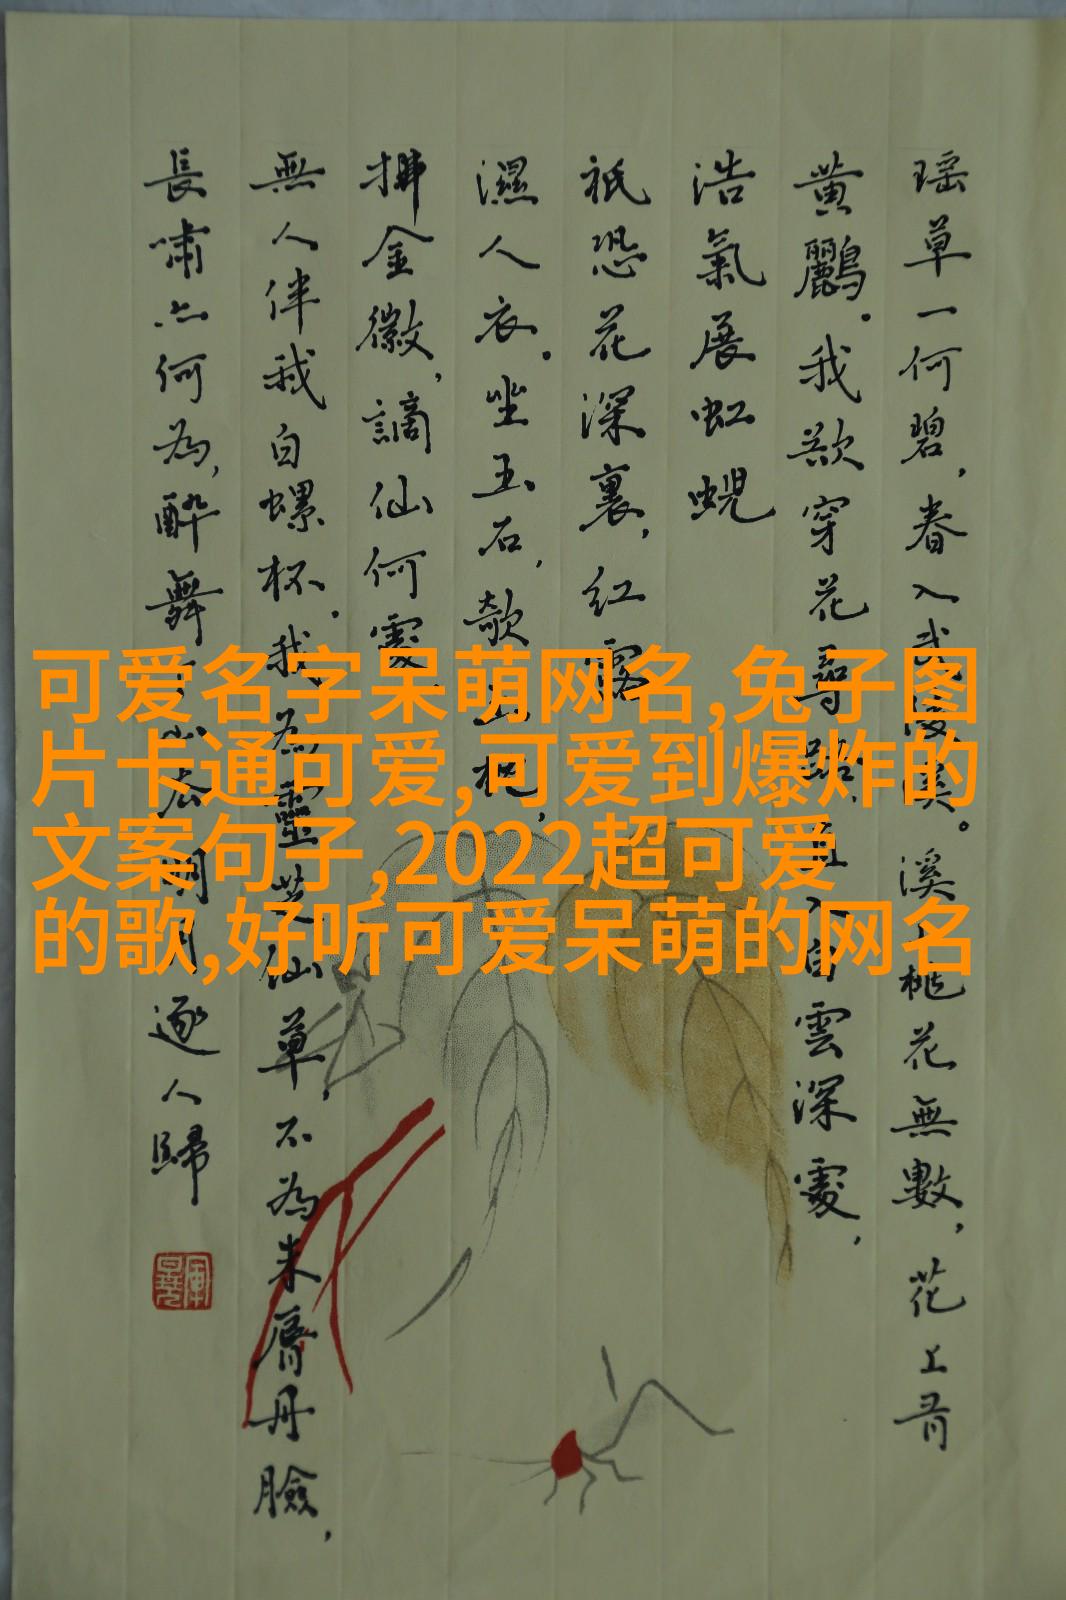 瑶草一何碧,春入武陵溪。溪上桃花無數,花上有
黄鸝。我欲穿花尋路,直入白雲深處,
浩氣展虹蜺
祇恐花深裏,紅露
濕人衣。坐玉石,欹玉枕,
拂金徽,謫仙何處,
無人伴我白螺杯。我為靈芝仙草,不為朱脣丹臉,
長嘯亦何為,醉舞下山去明月逐人歸
可爱名字呆萌网名,兔子图
片卡通可爱,可爱到爆炸的
文案句子,2022超可爱
的歌,好听可爱呆萌的网名